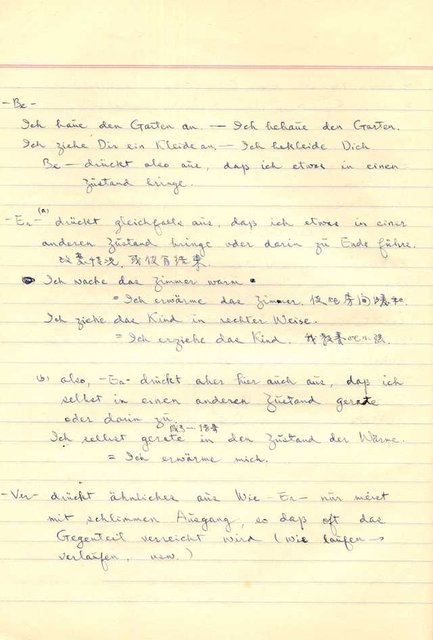 - Be -
Ich baue den Garten an. — Ich bebaue den Garten.
Ich ziehe Dir ein Kleid an. — Ich bekleide Dich
Be - drückt also aus, daß ich etwas in einen
Zustand bringe.
- Er - (a) drückt gleichfalls aus, daß ich etwas in einen
anderen Zustand bringe oder darin zu Ende führe.
改善情况, 或使有结果.
Ich mache das Zimmer warm
= Ich erwärme das Zimmer. 使房间温和.
Ich ziehe das Kind in rechter Weise.
= Ich erziehe das Kind. 我教养小孩.
(b) also, - Er - drückt aber hier auch aus, daß ich
selbst in einen anderen Zustand gerate
oder darin zu
Ich selbst gerate in den Zustand der Wärme.
= Ich erwärme mich.
- Ver - drückt ähnliches aus wie - Er - nur meist
mit schlimmen Ausgang, so daß oft das
Gegenteil erreicht wird (wie laufen →
verlaufen, usw.)